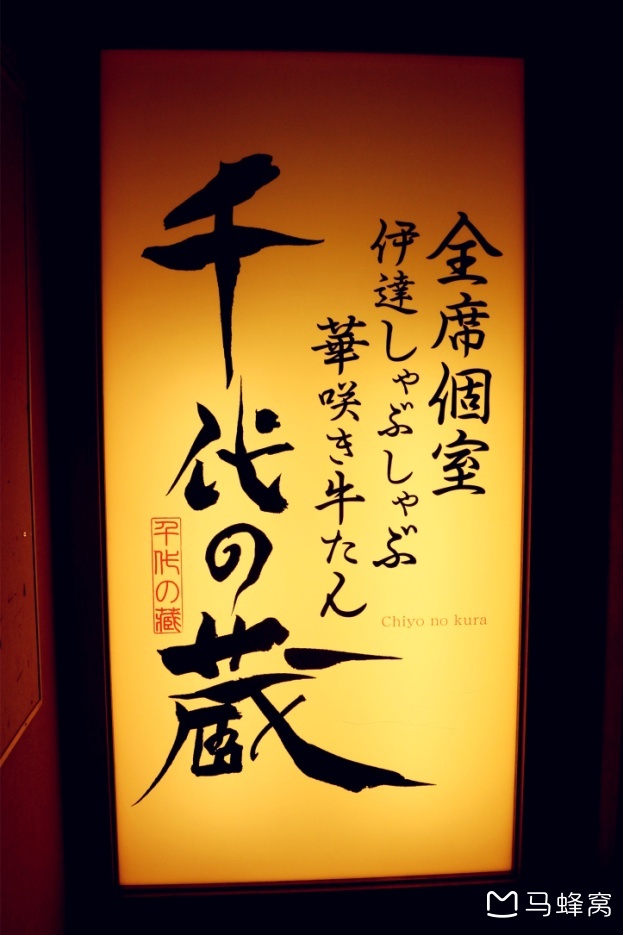 全席個室
伊達しゃぶしゃぶ
華咲き牛たん
千代の蔵
千代の蔵
Chiyo no kura
马蜂窝